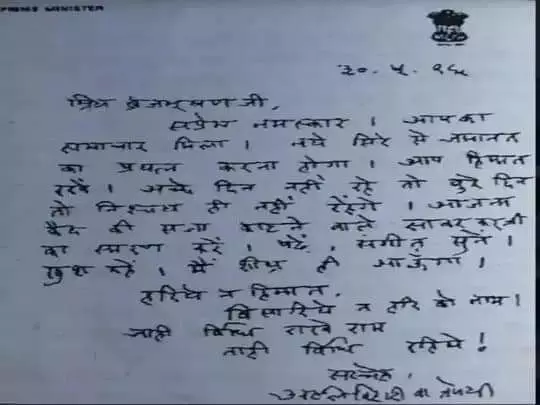 PRIME MINISTER
३०. ५. ९६
प्रिय ब्रृजभूषण जी,
सप्रेम नमस्कार । आपका
समाचार मिला । नये सिरे से जमानत
का प्रयत्न करना होगा । आप हिम्मत
रखें । अच्छे दिन नहीं रहे तो बुरे दिन
तो निश्चय ही नहीं रहेंगे । आजन्म
कैद की सजा काटने वाले सावरकर जी
का स्मरण करें । पढ़ें, संगीत सुनें ।
खुश रहें । मैं शीघ्र ही आऊँगा ।
हारिये न हिम्मत,
बिसारिये न हरि को नाम ।
जाही विधि राखे राम
ताही विधि रहिये !
सस्नेह,
अटल बिहारी वाजपेयी